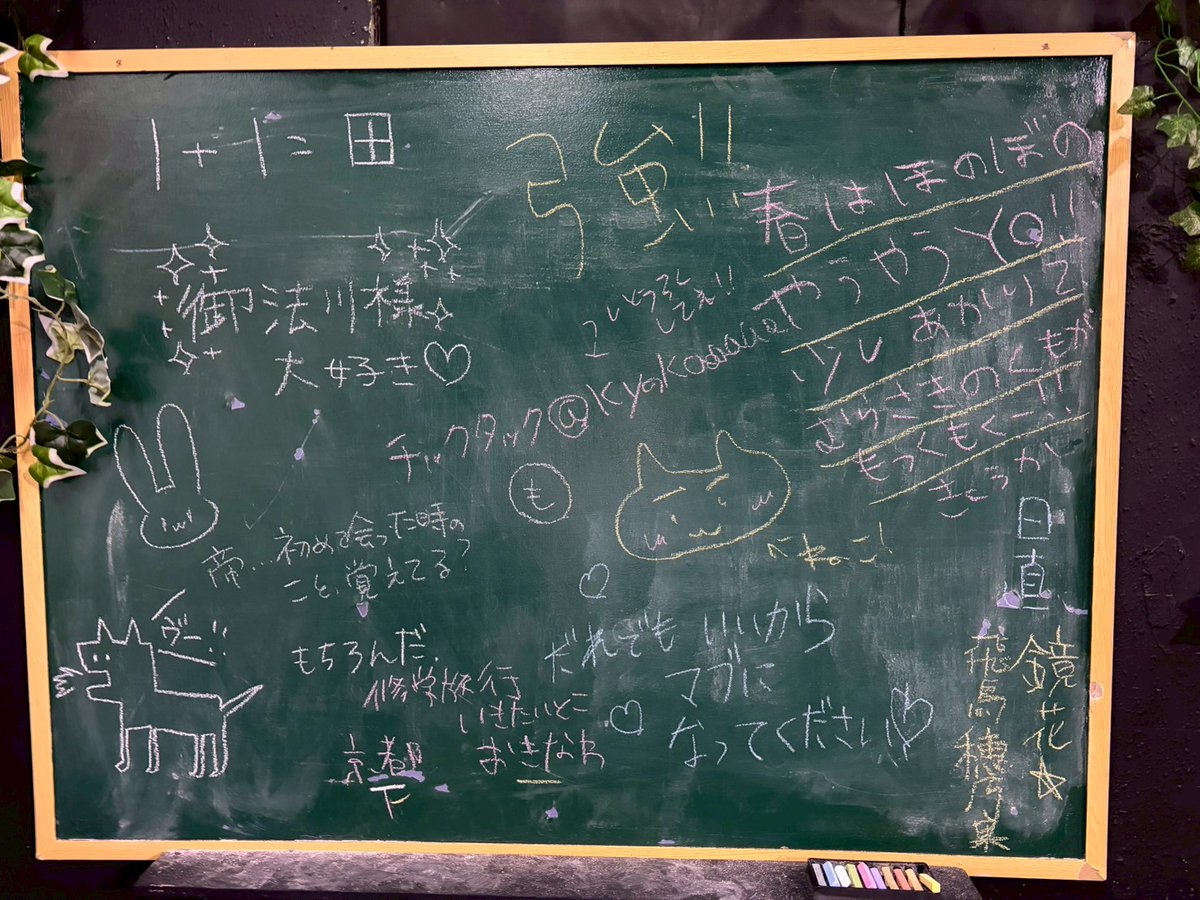 1+1=田
強い!!
春はほのぼの
やうやうYO!!
少し あかりて
むらさきのくもが
もっくもくー!!
御法川様
大好き♡
チックタック@kyoko
も
へねこ!
帝…初めて会った時の
こと、覚えてる?
ヴー…
もちろんだ。
修学旅行
いきたいとこ
京都!!
おきなわ
だれでも いいから
マブに
なってください♡
日直
鏡花☆
飛鳥穂澄菓